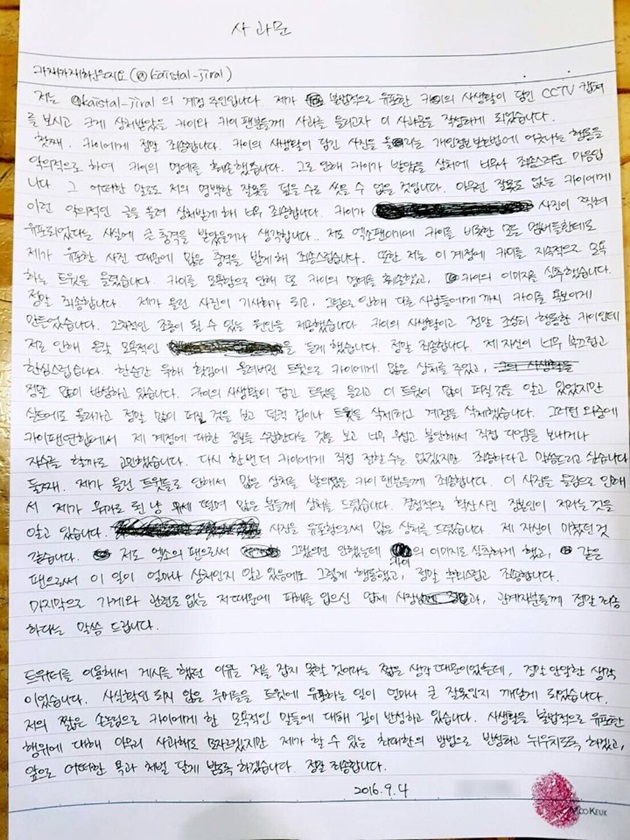 사 과 문
카재가재하는지요 (@kaistal_jiral)
저는 @kaistal_jiral 의 계정 주인입니다. 제가 불법적으로 유포한 카이의 사생활이 담긴 CCTV 캡쳐
를 보시고 크게 상처받았을 카이와 카이 팬분들께 사과를 드리고자 이 사과문을 작성하게 되었습니다.
첫째. 카이에게 정말 죄송합니다. 카이의 사생활이 담긴 사진을 개인정보보호법에 어긋나는 행동을
악의적으로 하여 카이의 명예를 훼손했습니다. 그로 인해 카이가 받았을 상처에 너무나 죄송스러운 마음입
니다. 그 어떠한 말로도 저의 명백한 잘못을 덮을 수는 없을 것입니다. 아무런 잘못도 없는 카이에게
이런 악의적인 글을 올려 상처받게 해 너무 죄송합니다. 카이가 사진이 찍혀
유포되었다는 사실에 큰 충격을 받았을거라 생각합니다. 저도 엑소팬이기에 카이를 비롯한 모든 멤버들한테도
제가 유포한 사진 때문에 많은 충격을 받게 해 죄송스럽습니다. 또한 저는 이 계정에 카이를 지속적으로 모욕
하는 트윗을 올렸습니다. 카이를 모욕함으로 인해 또 카이의 명예를 훼손했고, 카이의 이미지를 실추했습니다.
정말 죄송합니다. 제가 올린 사진이 기사화가 되고, 그럼으로 인해 다른 사람들에게까지 카이를
만들었습니다. 조롱이 될 수 있는 원인을 제공했습니다. 카이의 사생활이고 정말 조심히 행동한 카이인데
저로 인해 온갖 모욕적인 을 듣게 했습니다. 정말 죄송합니다. 제 자신이 너무 부끄럽고
한심스럽습니다. 한순간 올려버린 트윗으로 카이에게 많은 상처를 주었고,
정말 많이 반성하고 있습니다. 카이의 사생활이 담긴 트윗을 올리고 이 트윗이 많이 퍼질 것을 알고 있었지만
실트에도 올라가고 정말 많이 퍼진 것을 보고 덜컥 겁이나 트윗을 삭제하고 계정을 삭제했습니다. 그러던 와중에
카이팬연합에서 제 계정에 대한 정보를 수집한다는 것을 보고 너무 무섭고 불안해서 직접 디엠을 보내거나
자수를 할까도 고민했습니다. 다시 한번 더 카이에게 직접 전할 수는 없겠지만 죄송하다고 말씀드리고 싶습니다
둘째. 제가 올린 트윗으로 인해서 많은 상처를 받으셨을 카이 팬분들께 죄송합니다. 이 사진을 올림으로 인해
서 제가 뭐라도 된 냥 유세 떨며 많은 분들께 상처를 드렸습니다. 결정적으로 확산시킨 장본인이 저라는 것을
알고 있습니다. 사진을 유포함으로써 많은 상처를 드렸습니다. 제 자신이 미쳤던 것
같습니다. 저도 엑소의 팬으로써 그랬으면 안됐는데 카이의 이미지도 실추하게 했고, 같은
팬으로써 이 일이 얼마나 상처인지 알고 있음에도 그렇게 행동했고, 정말 후회스럽고 죄송합니다.
마지막으로 가게와 관련도 없는 저 때문에 피해를 입으신 업체 사장님과, 관계자분들께 정말 죄송
하다는 말씀 드립니다.
트위터를 이용해서 게시를 했던 이유는 저를 잡지 못할 것이라는 짧은 생각 때문이었는데, 정말 안일한 생각
이었습니다. 사실확인 되지 않은 루머들을 트윗에 유포하는 일이 얼마나 큰 잘못인지 깨닫게 되었습니다.
저의 짧은 손놀림으로 카이에게 한 모욕적인 말들에 대해 깊이 반성하고 있습니다. 사생활을 불법적으로 유포한
행위에 대해 아무리 사과해도 모자르겠지만 제가 할 수 있는 최대한의 방법으로 반성하고 뉘우치도록 하겠고,
앞으로 어떠한 욕과 처벌 달게 받도록 하겠습니다. 정말 죄송합니다.
2016. 9. 4
MOOKEUK